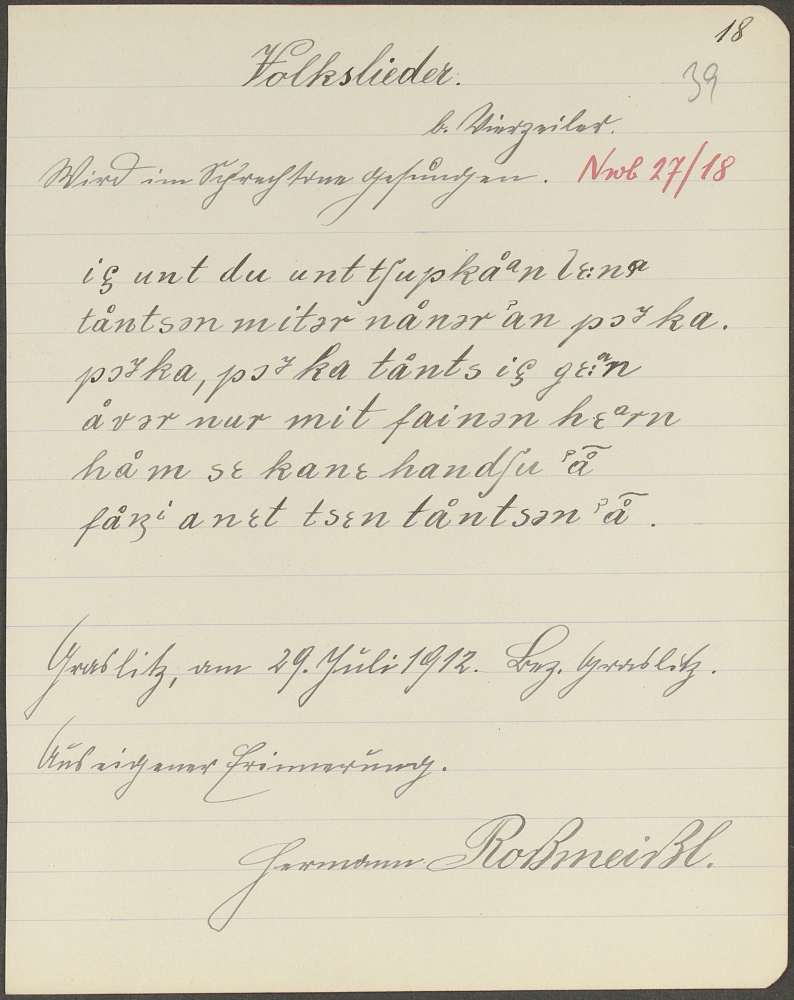 18
Volkslieder.
39
b. Vierzeiler.
Wird im Sprechtone gesungen. Nwb 27/18
iç unt du unt tʃupkåᵃn lɛ:nɐ
tåntsən mitər nånər ˀan pɔᶾka.
pɔᶾka, pɔᶾka tånts iç gɛ:ᵃn
åvər nur mit fainən hɛᵃrn
håm sɛ kanɛ handʃu ˀå̃
fåʒⁱ a nɛt tsɛn tåntsən ˀå̃.
Graslitz, am 29. Juli 1912. Bez. Graslitz.
Aus eigener Erinnerung.
Hermann Roßmeißl.